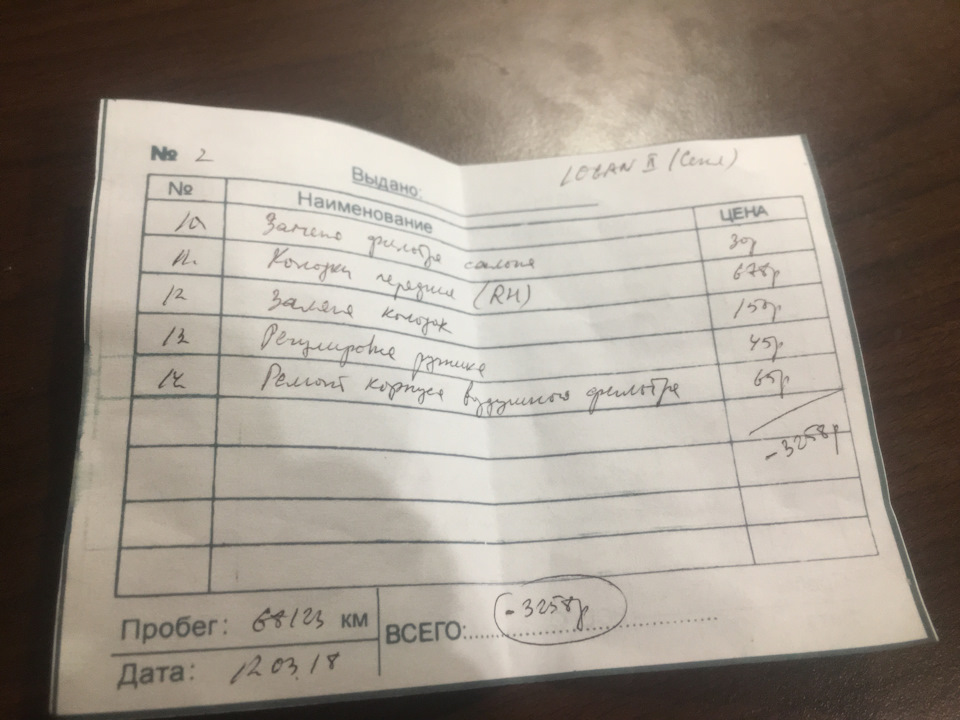 № 2
Выдано: LOGAN II (Сенл)
№ Наименование ЦЕНА
10 Замена фильтра салона 30р
11. Колодки передния (RH) 678р
12 Замена колодок 150р
13 Регулировка ручника 45р
14 Ремонт корпуса воздушного фильтра 65р
-3258р
Пробег: 68123 км
ВСЕГО: -3258р
Дата: 12.03.18